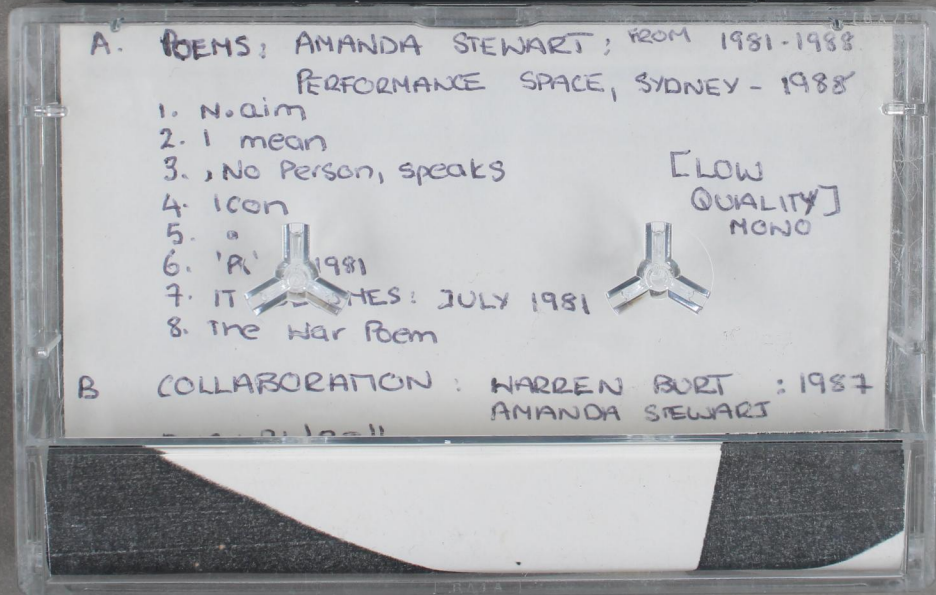 A. POEMS: AMANDA STEWART; FROM 1981-1988
PERFORMANCE SPACE, SYDNEY - 1988
1. N.aim
2. I mean
3. , No Person, speaks
4. Icon
5. "
6. 1981
7. IT : JULY 1981
8. The War Poem
[LOW
QUALITY]
MONO
B COLLABORATION : WARREN BURT : 1987
AMANDA STEWART